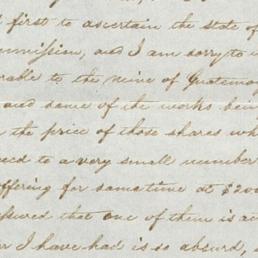 first to ascertain the state of
mmission, and I am sorry to
rable to the mine of Guatemo
and some of the works bein
the price of those shares wh
ced to a very small number
ffering for some time at $200
ssured that one of them is a
I have had is so absurd,